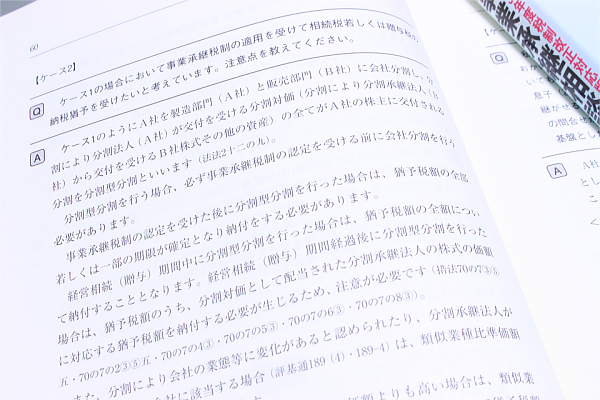 60
【ケース2】
Q
ケース1の場合において事業承継税制の適用を受けて相続税若しくは贈与税の
納税猶予を受けたいと考えています。注意点を教えてください。
A
ケース1のようにA社を製造部門（A社）と販売部門（B社）に会社分割し、分
割により分割法人（A社）が交付を受ける分割対価（分割により分割承継法人（B
社）から交付を受けるB社株式その他の資産）の全てがA社の株主に交付される
分割を分割型分割といいます（法法2十二の九）。
分割型分割を行う場合、必ず事業承継税制の認定を受ける前に会社分割を行う
必要があります。
事業承継税制の認定を受けた後に分割型分割を行った場合は、猶予税額の全部
若しくは一部の期限が確定となり納付をする必要があります。
経営相続（贈与）期間中に分割型分割を行った場合は、猶予税額の全額につい
て納付することとなります。経営相続（贈与）期間経過後に分割型分割を行った
場合は、猶予税額のうち、分割対価として配当された分割承継法人の株式の価額
に対応する猶予税額を納付する必要が生じるため、注意が必要です（措法70の7③⑤
五・70の7の2③⑤五・70の7の4③・70の7の5③・70の7の6③・70の7の8③）。
また、分割により会社の業態等に変化があると認められたり、分割承継法人が
会社に該当する場合（評基通189（4）・189-4）は、類似業種比準価額
価額よりも高い場合は、類似業
年度税制改正対応版
事業承継相談
Q
A
息子
継がせ
の問合せ
基盤とし
A社